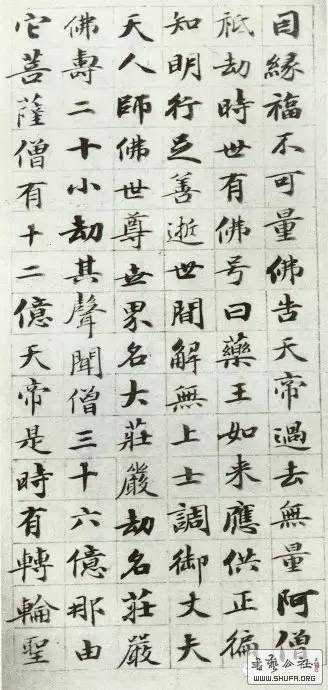 因緣福不可量佛告天帝過去無量阿僧
祇劫時世有佛号曰藥王如来應供正徧
知明行足善逝世間解無上士調御丈夫
天人師佛世尊世界名大莊嚴劫名莊嚴
佛壽二十小劫其聲聞僧三十六億那由
它菩薩僧有十二億天帝是時有轉輪聖
书艺公社
WWW.SHUFA.ORG